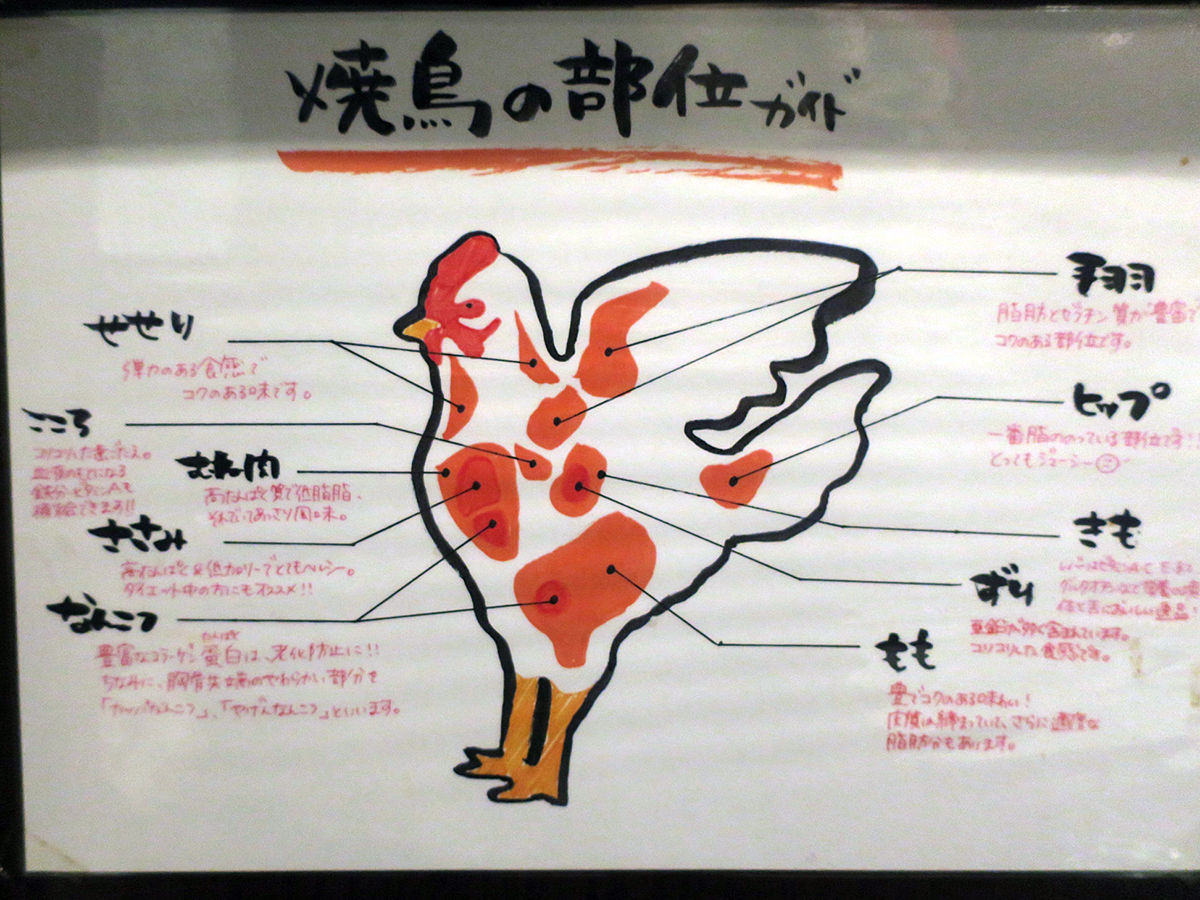 焼鳥の部位ガイド
せせり
弾力のある食感で
コクのある味です。
こころ
コリコリした歯ごたえ。
血液のもとになる
鉄分・ビタミンAも
補給できます!!
むね肉
高たんぱく質で低脂肪、
それでいてあっさり風味。
ささみ
高たんぱく&低カロリーでとてもヘルシー。
ダイエット中の方にもオススメ!!
なんこつ
たんぱく
豊富なコラーゲン蛋白は、老化防止に!!
ちなみに、胸骨先端のやわらかい部分を
「なんこつ」、「やげんなんこつ」といいます。
手羽
脂肪とゼラチン質が豊富で
コクのある部位です。
ヒップ
一番脂ののっている部位です!!
とってもジューシー
きも
レバーはビタミンA・C・E・B2
体と舌においしい逸品
ずり
亜鉛分が多く含まれています。
コリコリした食感です。
もも
豊でコクのある味わい!
肉質は締まっていて、さらに適度な
脂肪分もあります。